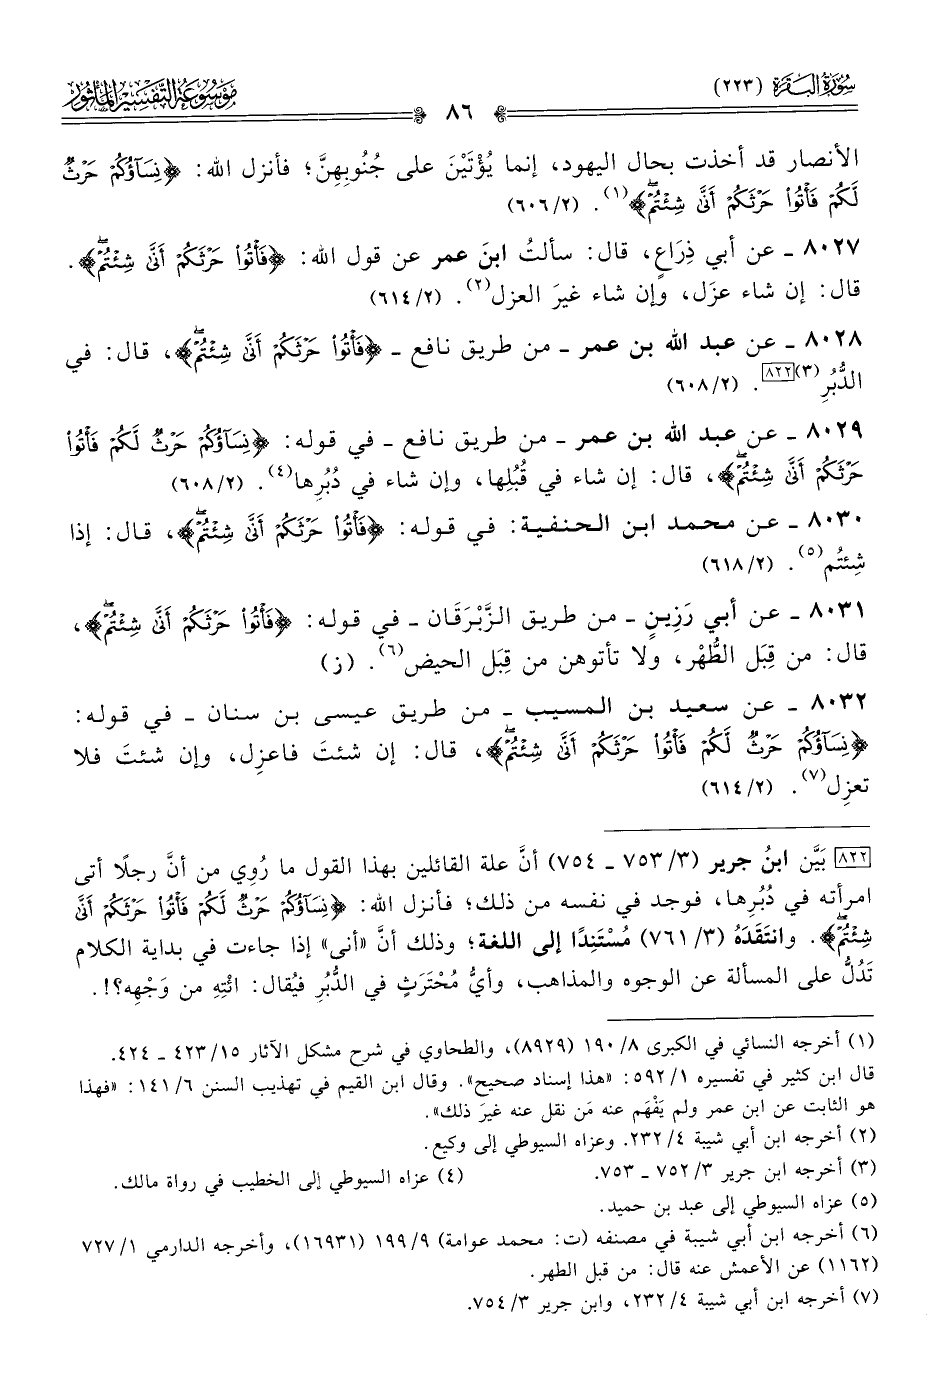 سُورَةُ البَقَرَة (٢٢٣)
٨٦
مَوْسُوعَة التَّفْسِير المَأْثُور
الأنصار قد أخذت بحال اليهود، إنما يُؤْتَيْنَ على جُنُوبِهِنَّ؛ فأنزل الله: ﴿نِسَآؤُكُمْ حَرْثٌ
لَّكُمْ فَأْتُوا۟ حَرْثَكُمْ أَنَّىٰ شِئْتُمْۖ﴾(١). (٢/ ٦٠٦)
٨٠٢٧ ـ عن أبي ذِرَاعٍ، قال: سألتُ ابنَ عمر عن قول الله: ﴿فَأْتُوا۟ حَرْثَكُمْ أَنَّىٰ شِئْتُمْۖ﴾.
قال: إن شاء عزَل، وإن شاء غيرَ العزل(٢). (٢/ ٦١٤)
٨٠٢٨ ـ عن عبد الله بن عمر ـ من طريق نافع ـ ﴿فَأْتُوا۟ حَرْثَكُمْ أَنَّىٰ شِئْتُمْۖ﴾، قال: في
الدُّبُرِ(٣)[٨٢٢]. (٢/ ٦٠٨)
٨٠٢٩ ـ عن عبد الله بن عمر ـ من طريق نافع ـ في قوله: ﴿نِسَآؤُكُمْ حَرْثٌ لَّكُمْ فَأْتُوا۟
حَرْثَكُمْ أَنَّىٰ شِئْتُمْۖ﴾، قال: إن شاء في قُبُلِها، وإن شاء في دُبُرِها(٤). (٢/ ٦٠٨)
٨٠٣٠ ـ عن محمد ابن الحنفية: في قوله: ﴿فَأْتُوا۟ حَرْثَكُمْ أَنَّىٰ شِئْتُمْۖ﴾، قال: إذا
شِئتُم(٥). (٢/ ٦١٨)
٨٠٣١ ـ عن أبي رَزِينٍ ـ من طريق الزَّبْرَقَان ـ في قوله: ﴿فَأْتُوا۟ حَرْثَكُمْ أَنَّىٰ شِئْتُمْۖ﴾،
قال: من قِبَل الطُّهْر، ولا تأتوهن من قِبَل الحيض(٦). (ز)
٨٠٣٢ ـ عن سعيد بن المسيب ـ من طريق عيسى بن سنان ـ في قوله:
﴿نِسَآؤُكُمْ حَرْثٌ لَّكُمْ فَأْتُوا۟ حَرْثَكُمْ أَنَّىٰ شِئْتُمْۖ﴾، قال: إن شئتَ فاعزِل، وإن شئتَ فلا
تعزِل(٧). (٢/ ٦١٤)
[٨٢٢] بَيَّن ابنُ جرير (٣/ ٧٥٣ ـ ٧٥٤) أنَّ علة القائلين بهذا القول ما رُوِي من أنَّ رجلًا أتى
امرأته في دُبُرِها، فوجد في نفسه من ذلك؛ فأنزل الله: ﴿نِسَآؤُكُمْ حَرْثٌ لَّكُمْ فَأْتُوا۟ حَرْثَكُمْ أَنَّىٰ
شِئْتُمْۖ﴾. وانتَقَدَهُ (٣/ ٧٦١) مُسْتَنِدًا إلى اللغة؛ وذلك أنَّ «أنى» إذا جاءت في بداية الكلام
تَدُلُّ على المسألة عن الوجوه والمذاهب، وأيُّ مُحْتَرَثٍ في الدُّبُرِ فيُقال: ائْتِهِ من وَجْهِه؟!.
(١) أخرجه النسائي في الكبرى ٨/ ١٩٠ (٨٩٢٩)، والطحاوي في شرح مشكل الآثار ١٥/ ٤٢٣ ـ ٤٢٤.
قال ابن كثير في تفسيره ١/ ٥٩٢: «هذا إسناد صحيح». وقال ابن القيم في تهذيب السنن ٦/ ١٤١: «فهذا
هو الثابت عن ابن عمر ولم يَفْهَم عنه مَن نقل عنه غيرَ ذلك».
(٢) أخرجه ابن أبي شيبة ٤/ ٢٣٢. وعزاه السيوطي إلى وكيع.
(٣) أخرجه ابن جرير ٣/ ٧٥٢ ـ ٧٥٣. (٤) عزاه السيوطي إلى الخطيب في رواة مالك.
(٥) عزاه السيوطي إلى عبد بن حميد.
(٦) أخرجه ابن أبي شيبة في مصنفه (ت: محمد عوامة) ٩/ ١٩٩ (١٦٩٣١)، وأخرجه الدارمي ١/ ٧٢٧
(١١٦٢) عن الأعمش عنه قال: من قبل الطهر.
(٧) أخرجه ابن أبي شيبة ٤/ ٢٣٢، وابن جرير ٣/ ٧٥٤.